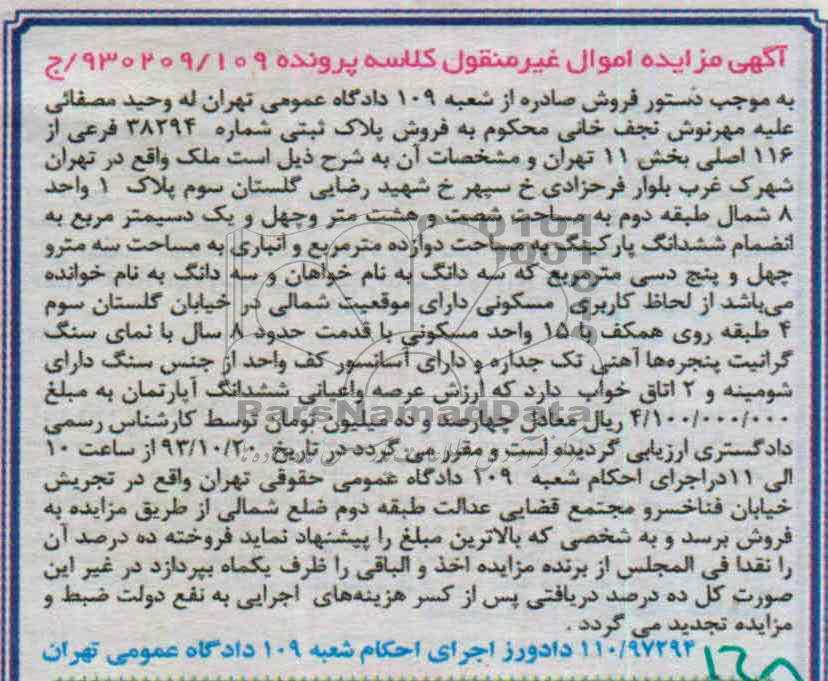 آگهی مزایده اموال غیرمنقول کلاسه پرونده ۹۳۰۲۰۹/۱۰۹/ج
به موجب دستور فروش صادره از شعبه ۱۰۹ دادگاه عمومی تهران له وحید مصفائی
علیه مهرنوش نجف خانی محکوم به فروش پلاک ثبتی شماره ۳۸۲۹۴ فرعی از
۱۱۶ اصلی بخش ۱۱ تهران و مشخصات آن به شرح ذیل است ملک واقع در تهران
شهرک غرب بلوار فرحزادی خ سپهر خ شهید رضایی گلستان سوم پلاک ۱ واحد
۸ شمال طبقه دوم به مساحت شصت و هشت متر وچهل و یک دسیمتر مربع به
انضمام ششدانگ پارکینگ به مساحت دوازده مترمربع و انباری به مساحت سه مترو
چهل و پنج دسی مترمربع که سه دانگ به نام خواهان و سه دانگ به نام خوانده
می‌باشد از لحاظ کاربری مسکونی دارای موقعیت شمالی در خیابان گلستان سوم
۴ طبقه روی همکف با ۱۵ واحد مسکونی با قدمت حدود ۸ سال با نمای سنگ
گرانیت پنجره‌ها آهنی تک جداره و دارای آسانسور کف واحد از جنس سنگ دارای
شومینه و ۲ اتاق خواب دارد که ارزش عرصه واعیانی ششدانگ آپارتمان به مبلغ
ParsNamadData
۴/۱۰۰/۰۰۰/۰۰۰ ریال معادل چهارصد و ده میلیون تومان توسط کارشناس رسمی
دادگستری ارزیابی گردیده است و مقرر می گردد در تاریخ ۹۳/۱۰/۲۰ از ساعت ۱۰
الی ۱۱دراجرای احکام شعبه ۱۰۹ دادگاه عمومی حقوقی تهران واقع در تجریش
خیابان فناخسرو مجتمع قضایی عدالت طبقه دوم ضلع شمالی از طریق مزایده به
فروش برسد و به شخصی که بالاترین مبلغ را پیشنهاد نماید فروخته ده درصد آن
را نقدا فی المجلس از برنده مزایده اخذ و الباقی را ظرف یکماه بپردازد در غیر این
صورت کل ده درصد دریافتی پس از کسر هزینه‌های اجرایی به نفع دولت ضبط و
مزایده تجدید می گردد .
۱۱۰/۹۷۲۹۴ دادورز اجرای احکام شعبه ۱۰۹ دادگاه عمومی تهران